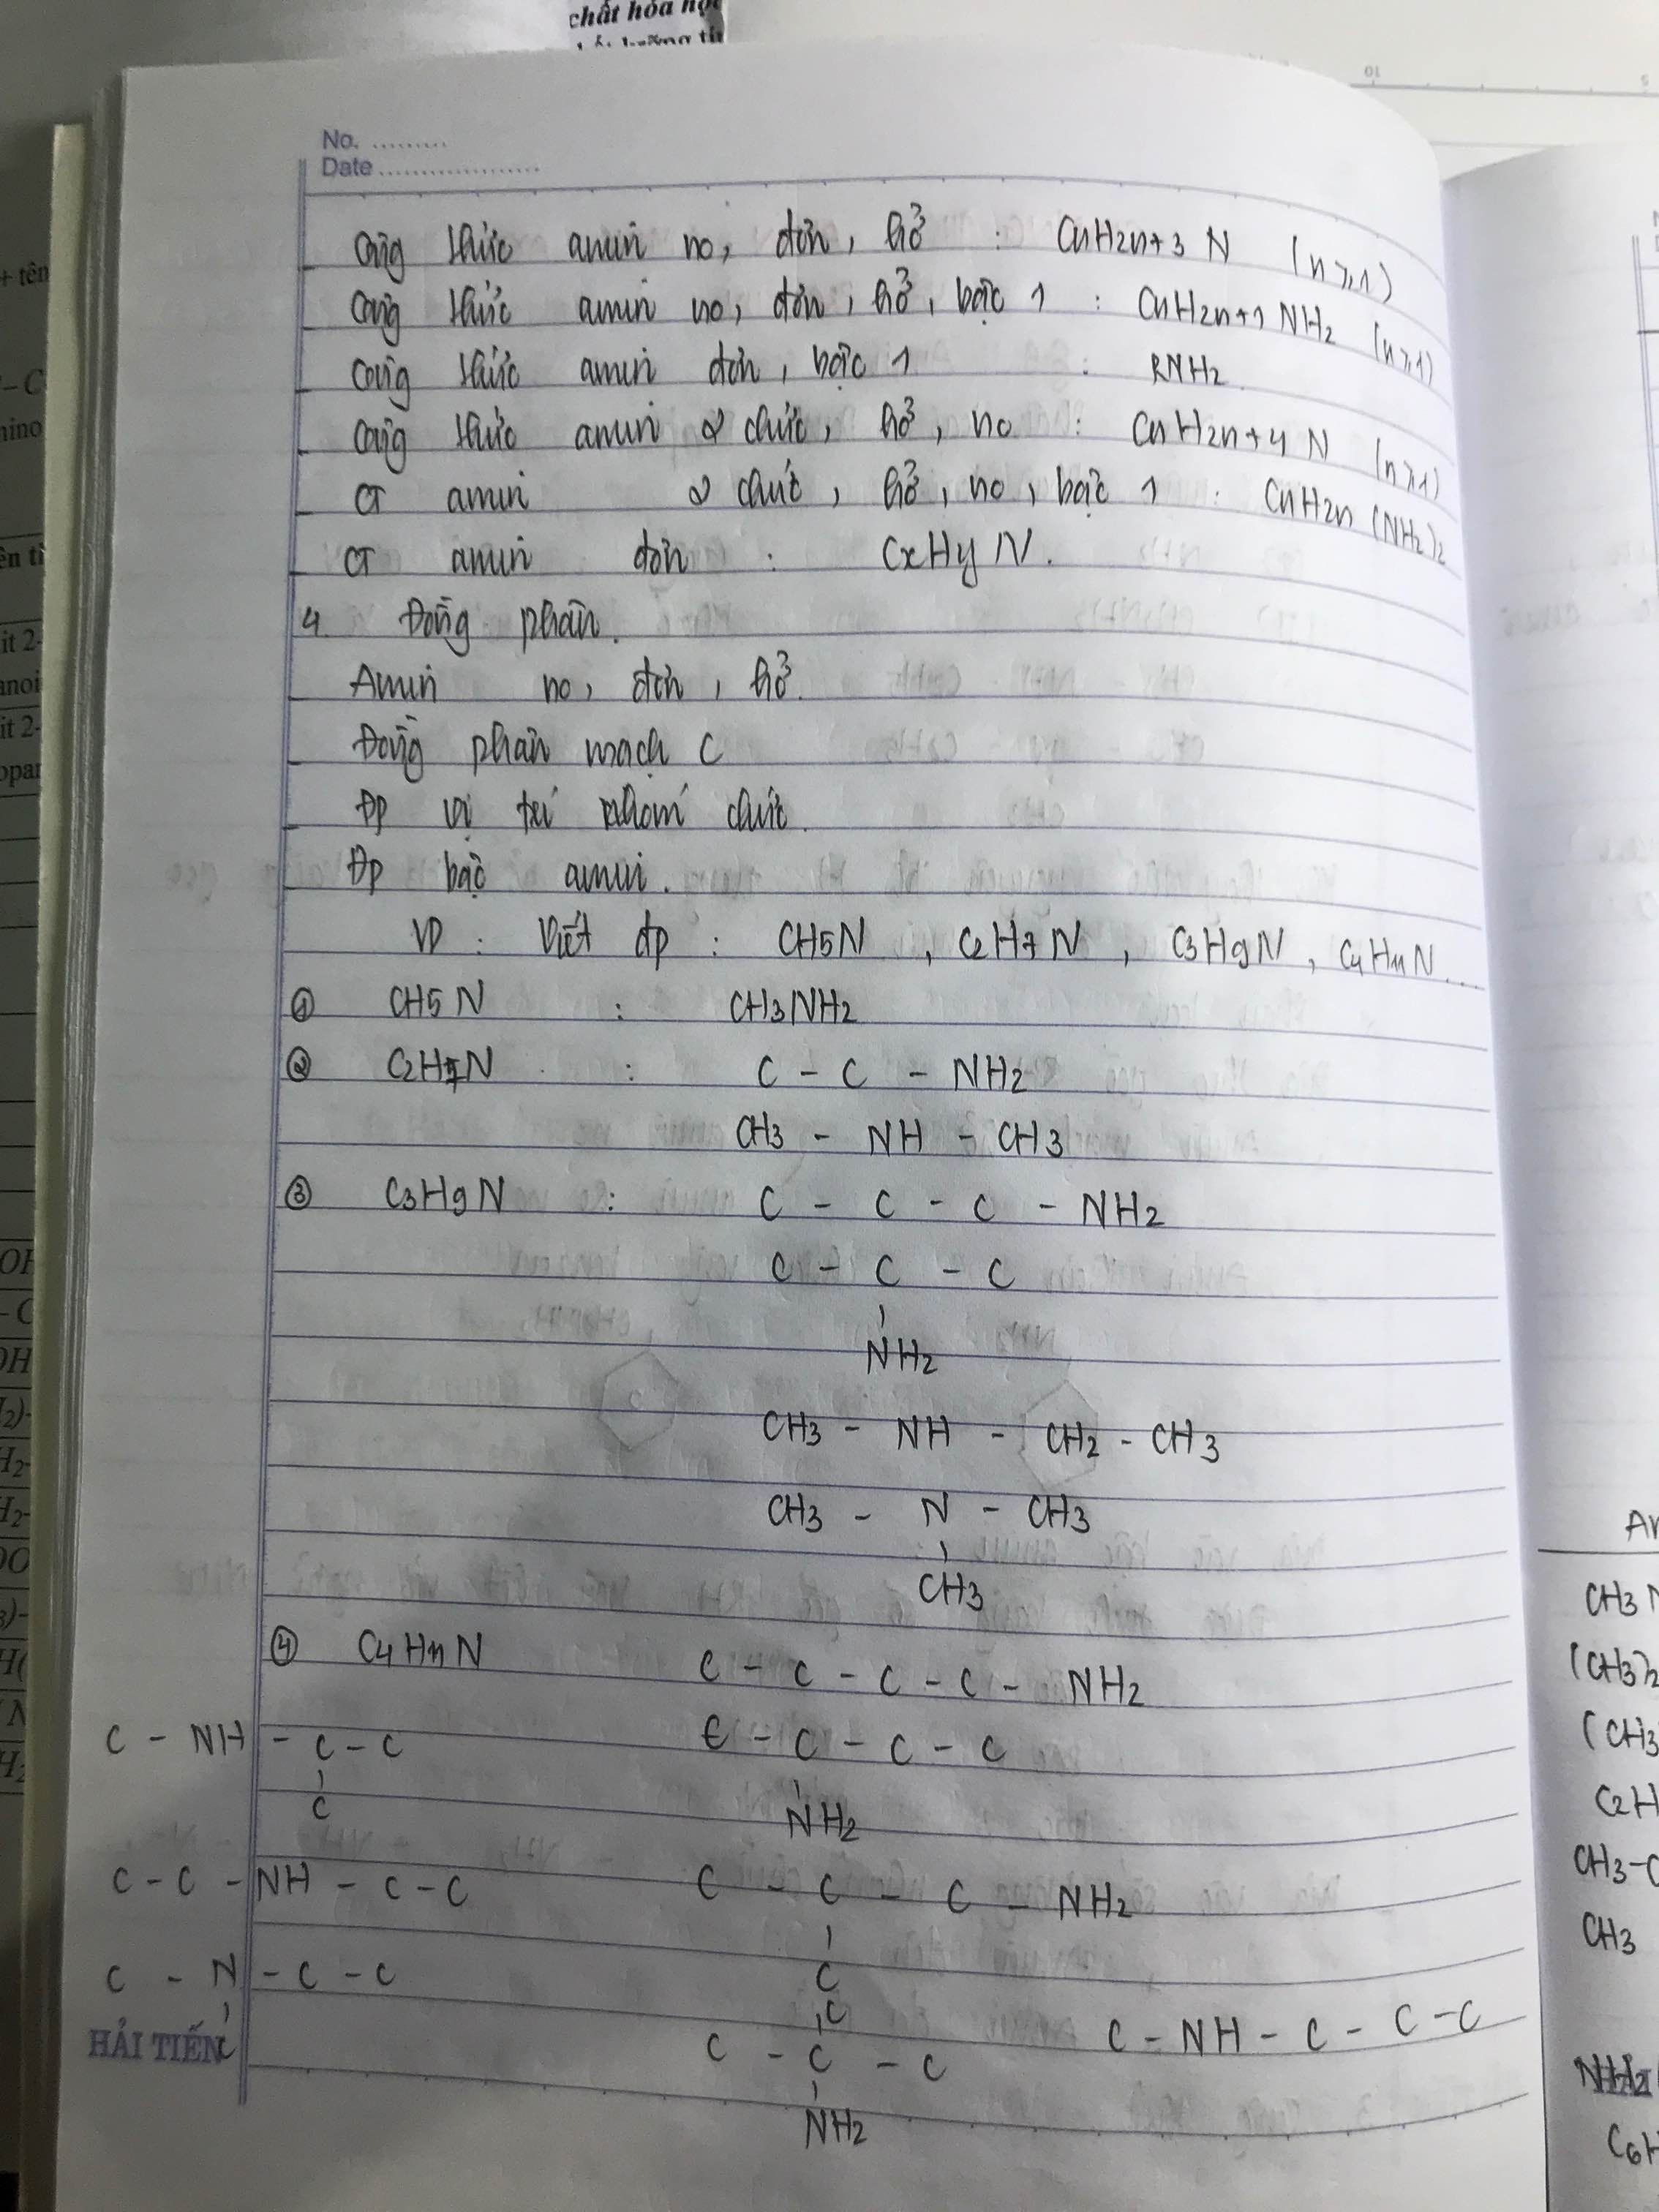 chất hóa học
No. .........
Date ....................
Công thức amin no, đơn, hở : CnH2n+3 N (n ≥ 1)
Công thức amin no, đơn, hở, bậc 1 : CnH2n+1 NH2 (n ≥ 1)
Công thức amin đơn, bậc 1 : RNH2
Công thức amin 2 chức, hở, no : CnH2n+4 N (n ≥ 1)
CT amin 2 chức, hở, no, bậc 1 : CnH2n (NH2)2
CT amin đơn : CxHyN.
4. Đồng phân.
Amin no, đơn, hở.
Đồng phân mạch C
Đp vị trí nhóm chức.
Đp bậc amin.
VD : Viết đp : CH5N , C2H7N , C3H9N , C4H11N...
① CH5N : CH3NH2
② C2H7N : C - C - NH2
CH3 - NH - CH3
③ C3H9N : C - C - C - NH2
C - C - C
NH2
CH3 - NH - CH2 - CH3
CH3 - N - CH3
CH3
④ C4H11N C - C - C - C - NH2
C - NH - C - C
C
C - C - C - C
NH2
C - C - NH - C - C
C - C - C - NH2
C
C - N - C - C
C
C
C - C - C
NH2
C - NH - C - C - C
HẢI TIẾN
+ tên
CH3
(CH3)2
(CH3
C2H
CH3-C
CH3
NH2
C6H